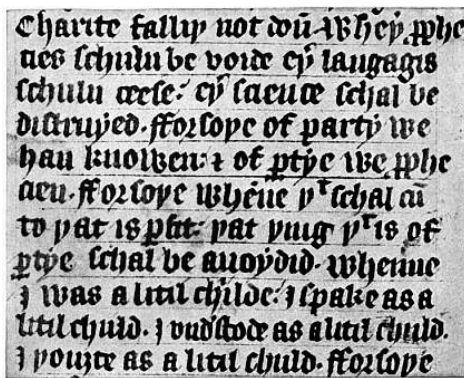 Charite falliþ not doū. Wheþ. ꝓphe
cies schuln be voide eþ langagis
schuln ceese: eþ science schal be
distruyed. fforsoþe of party we
han knowen: ⁊ of ꝑtye we ꝓphe
cien. fforsoþe whēne þᵗ schal cū
to þat is ꝑfit: þat þing þᵗ is of
ꝑtye schal be auoydid. Whenne
I was a litil childe: I spake as a
litil chijld. I vndstode as a litil chijld.
I þouȝte as a litil chijld. fforsoþe